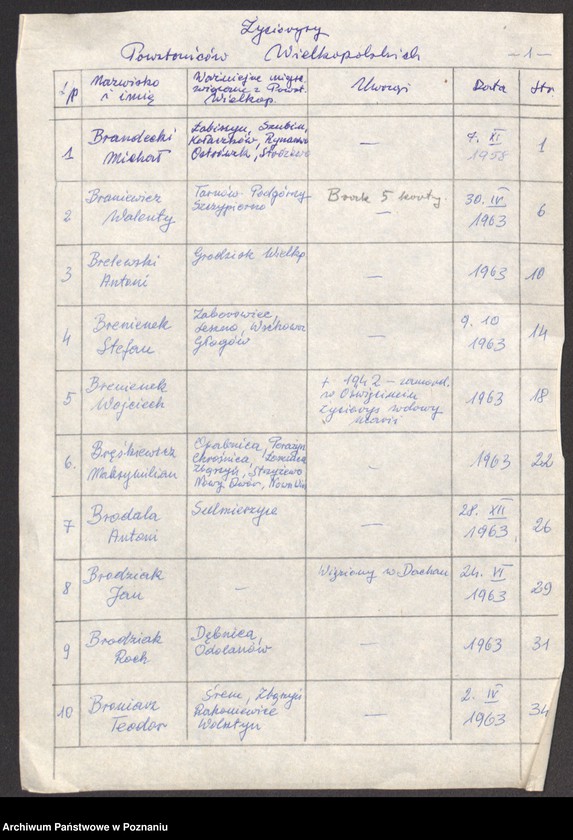 Życiorysy
Powstańców Wielkopolskich
— 1 —
L/p
Nazwisko
i imię
Ważniejsze miejsc.
związane z Powst.
Wielkop.
Uwagi
Data
Str.
1
Brandecki
Michał
Łabiszyn, Szubin,
Rynarzewo
—
7. XI
1958
1
2
Braniewicz
Walenty
Tarnów-Podgórny
Szczypiorno
Brak 5 karty.
—
30. IV
1963
6
3
Brelewski
Antoni
Grodzisk Wielkp
—
1963
10
4
Brenienek
Stefan
Zaborowiec,
Leszno, Wschowa
Głogów
—
9. 10
1963
14
5
Brenienek
Wojciech
+ 1942 – zamord.
w Oświęcimiu
życiorys wdowy
1963
18
6.
Breśkiewicz
Maksymilian
Opalenica,
Chrośnica,
Zbąszyń, Strzyżewo
Nowy Dwór, Nowa Wieś
—
1963
22
7
Brodala
Antoni
Sulmierzyce
—
28. XII
1963
26
8
Brodziak
Jan
—
Więziony w Dachau
24. VI
1963
29
9
Brodziak
Roch
Dębnica,
Odolanów
—
1963
31
10
Broniarz
Teodor
Śrem, Zbąszyń
Rakoniewice
Wolsztyn
—
2. IV
1963
34
Archiwum Państwowe w Poznaniu